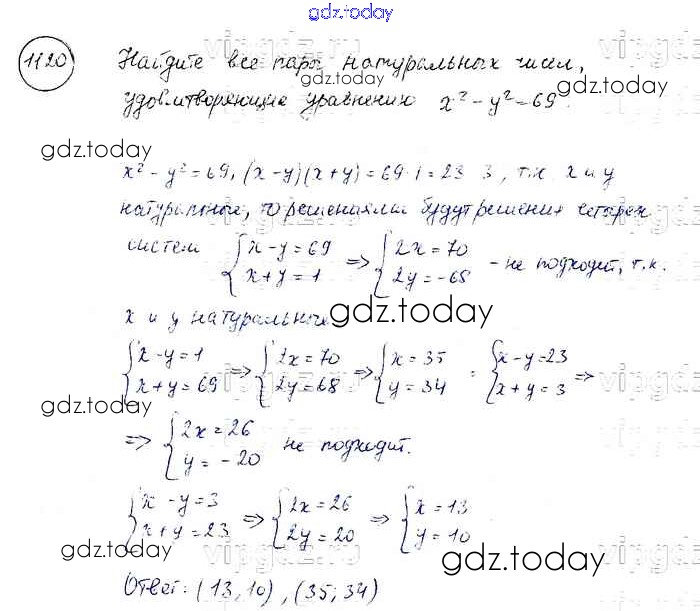 gdz.today
1120 Найдите все пары натуральных чисел,
gdz.today
удовлетворяющие уравнению x² - y² = 69.
gdz.today
x² - y² = 69, (x - y)(x + y) = 69 · 1 = 23 · 3, т.к. x и y
натуральные, то решениями будут решения четырех
систем { x - y = 69 x + y = 1 => { 2x = 70 2y = -68 - не подходит, т.к.
x и y натуральные.
gdz.today
{ x - y = 1 x + y = 69 => { 2x = 70 2y = 68 => { x = 35 y = 34 ; { x - y = 23 x + y = 3 =>
gdz.today
=> { 2x = 26 y = -20 не подходит.
{ x - y = 3 x + y = 23 => { 2x = 26 2y = 20 => { x = 13 y = 10
gdz.today
gdz.today
Ответ: (13, 10), (35; 34)